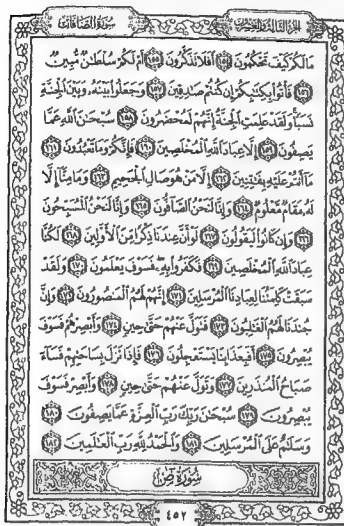 الجزء الثالث والعشرون
سورة الصافات
مَا لَكُمْ كَيْفَ تَحْكُمُونَ ١٥٤ أَفَلَا تَذَكَّرُونَ ١٥٥ أَمْ لَكُمْ سُلْطَانٌ مُّبِينٌ
١٥٦ فَأْتُوا بِكِتَابِكُمْ إِن كُنتُمْ صَادِقِينَ ١٥٧ وَجَعَلُوا بَيْنَهُ وَبَيْنَ الْجِنَّةِ
نَسَبًا وَلَقَدْ عَلِمَتِ الْجِنَّةُ إِنَّهُمْ لَمُحْضَرُونَ ١٥٨ سُبْحَانَ اللَّهِ عَمَّا
يَصِفُونَ ١٥٩ إِلَّا عِبَادَ اللَّهِ الْمُخْلَصِينَ ١٦٠ فَإِنَّكُمْ وَمَا تَعْبُدُونَ ١٦١
مَا أَنتُمْ عَلَيْهِ بِفَاتِنِينَ ١٦٢ إِلَّا مَنْ هُوَ صَالِ الْجَحِيمِ ١٦٣ وَمَا مِنَّا إِلَّا
لَهُ مَقَامٌ مَّعْلُومٌ ١٦٤ وَإِنَّا لَنَحْنُ الصَّافُّونَ ١٦٥ وَإِنَّا لَنَحْنُ الْمُسَبِّحُونَ
١٦٦ وَإِن كَانُوا لَيَقُولُونَ ١٦٧ لَوْ أَنَّ عِندَنَا ذِكْرًا مِّنَ الْأَوَّلِينَ ١٦٨ لَكُنَّا
عِبَادَ اللَّهِ الْمُخْلَصِينَ ١٦٩ فَكَفَرُوا بِهِ فَسَوْفَ يَعْلَمُونَ ١٧٠ وَلَقَدْ
سَبَقَتْ كَلِمَتُنَا لِعِبَادِنَا الْمُرْسَلِينَ ١٧١ إِنَّهُمْ لَهُمُ الْمَنصُورُونَ ١٧٢ وَإِنَّ
جُندَنَا لَهُمُ الْغَالِبُونَ ١٧٣ فَتَوَلَّ عَنْهُمْ حَتَّى حِينٍ ١٧٤ وَأَبْصِرْهُمْ فَسَوْفَ
يُبْصِرُونَ ١٧٥ أَفَبِعَذَابِنَا يَسْتَعْجِلُونَ ١٧٦ فَإِذَا نَزَلَ بِسَاحَتِهِمْ فَسَاءَ
صَبَاحُ الْمُنذَرِينَ ١٧٧ وَتَوَلَّ عَنْهُمْ حَتَّى حِينٍ ١٧٨ وَأَبْصِرْ فَسَوْفَ
يُبْصِرُونَ ١٧٩ سُبْحَانَ رَبِّكَ رَبِّ الْعِزَّةِ عَمَّا يَصِفُونَ ١٨٠
وَسَلَامٌ عَلَى الْمُرْسَلِينَ ١٨١ وَالْحَمْدُ لِلَّهِ رَبِّ الْعَالَمِينَ ١٨٢
سُورَةُ ص
٤٥٢